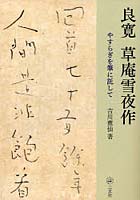 良寛 草庵雪夜作
やすらぎを筆に託して
吉川蕉仙 著
回首七十有餘年
人間是非飽看
二玄社